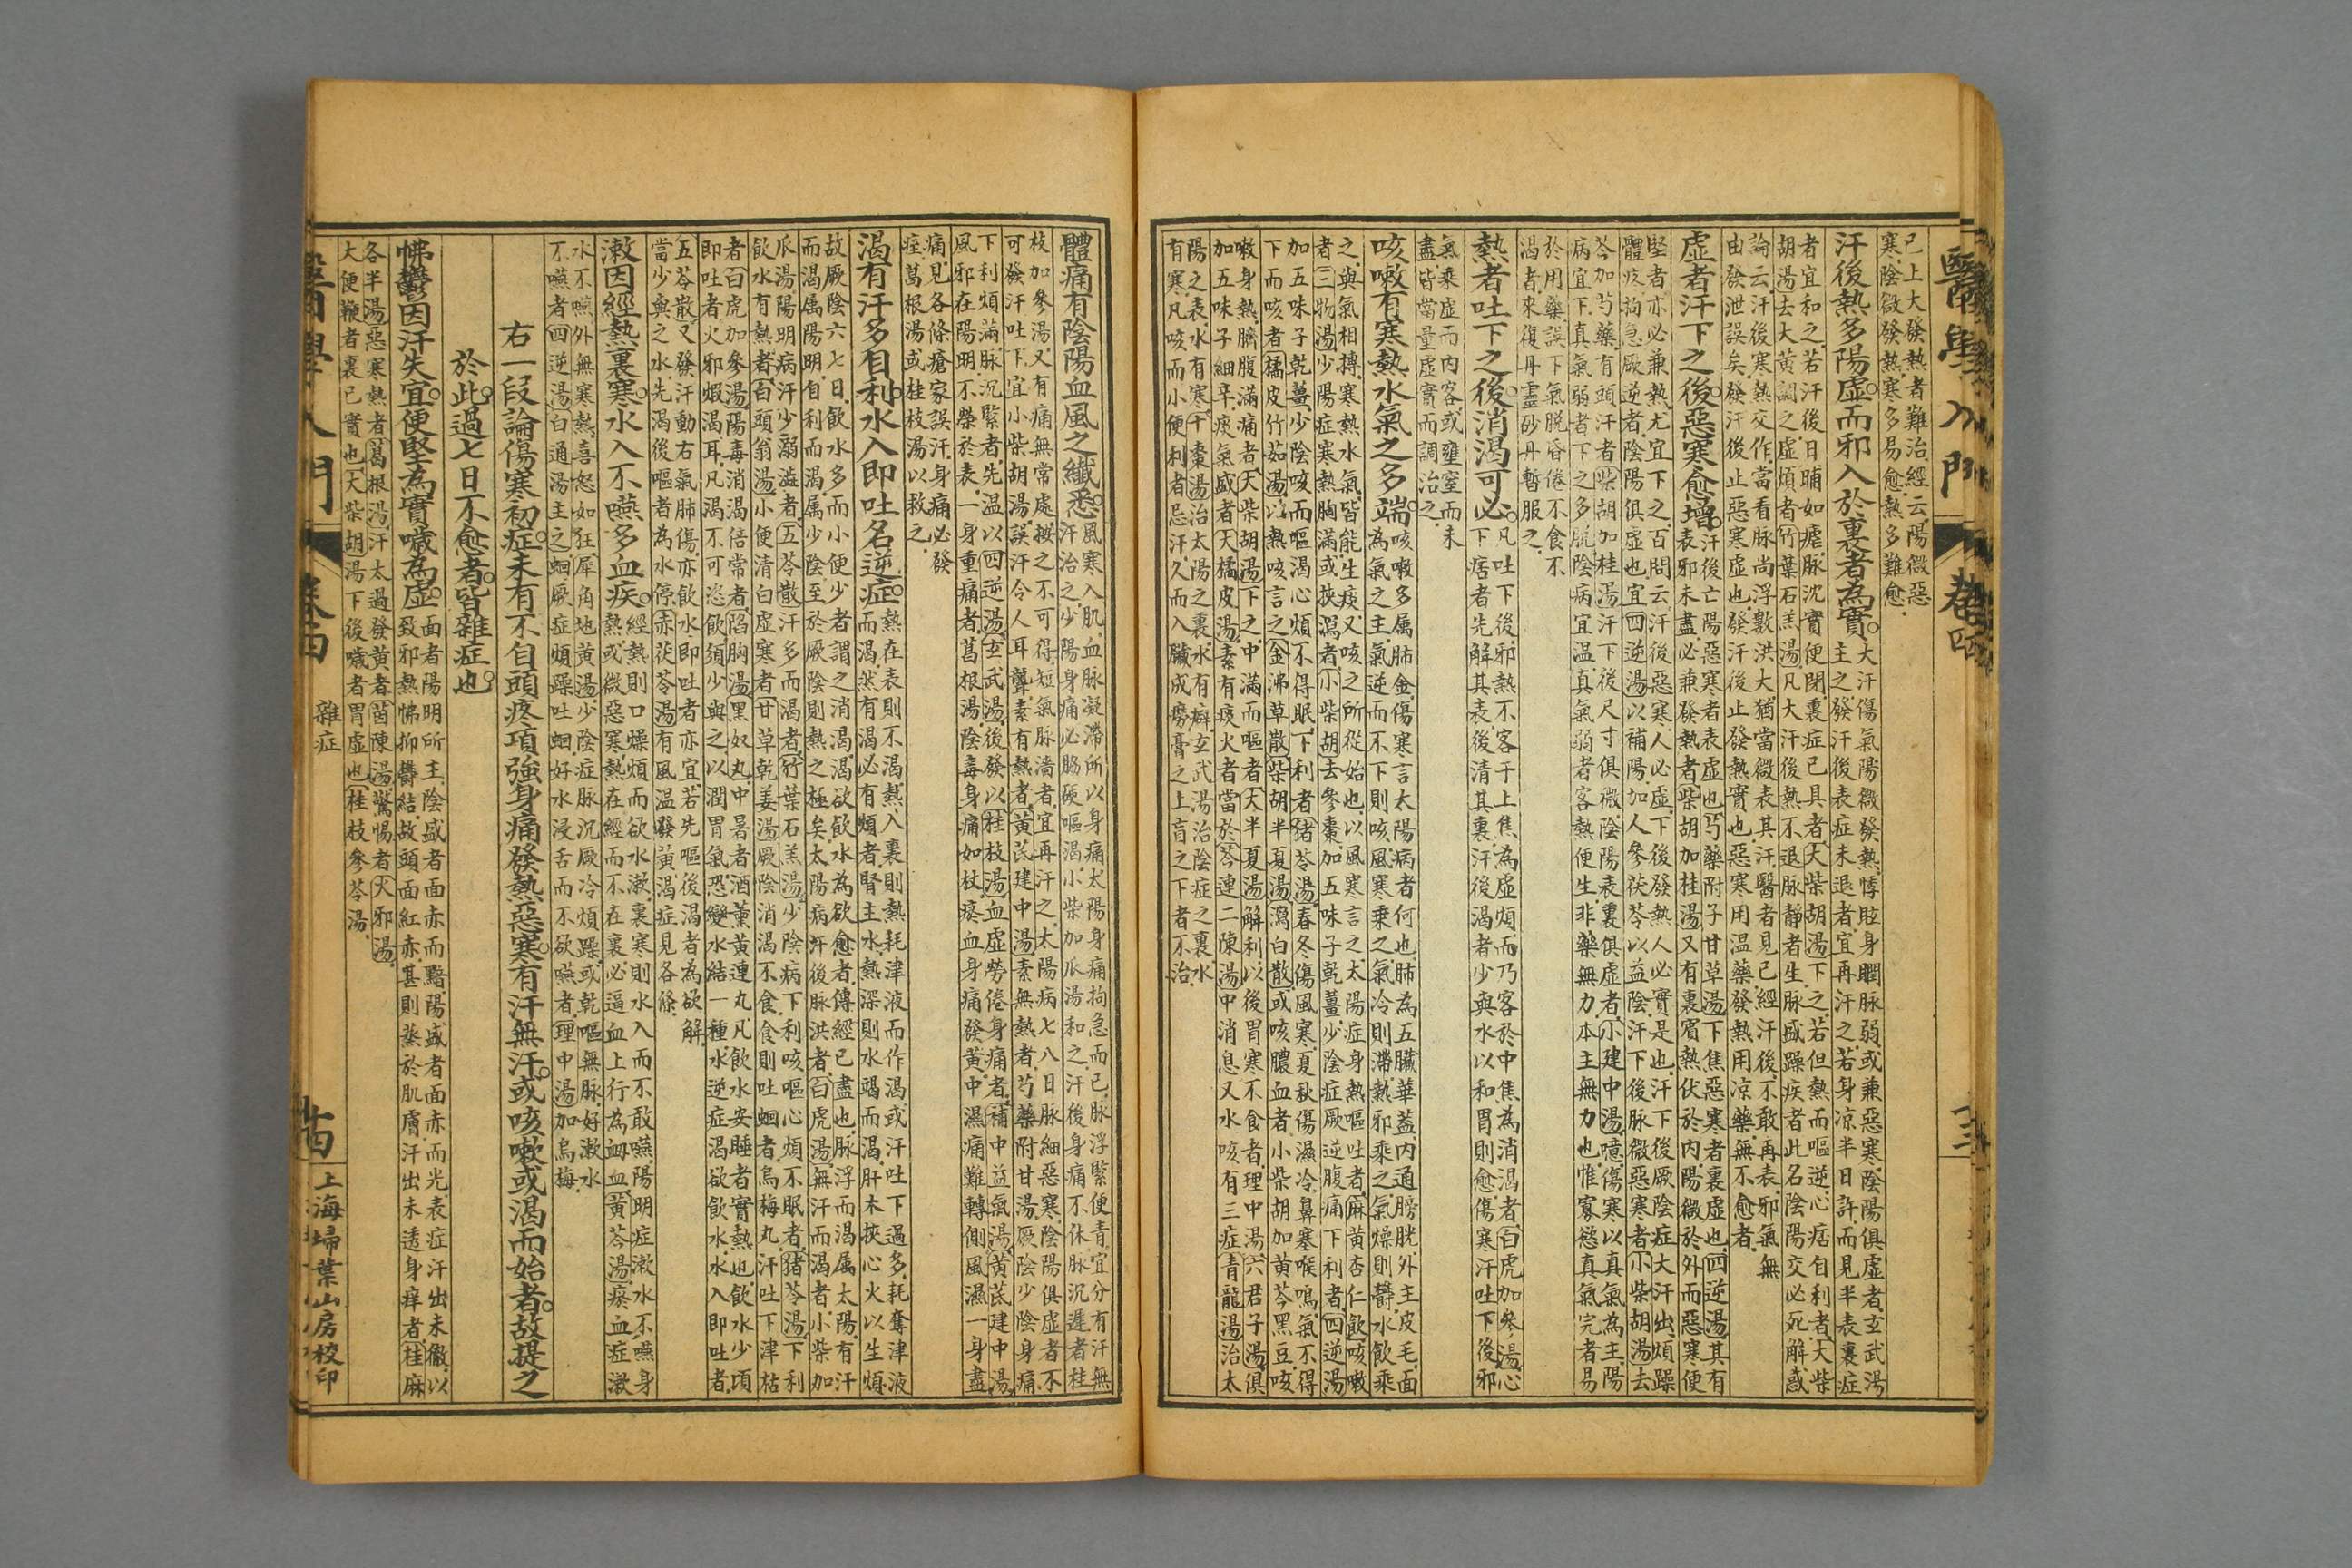 醫學入門 卷四 十三
已上大發熱者難治經云陽微惡
寒陰微發熱寒多易愈熱多難愈
汗後熱多陽虛而邪入於裏者為實
大汗傷氣陽微發熱悸眩身瞤脈弱或兼惡寒陰陽俱虛者玄武湯
主之發汗後表症未退者宜再汗之若身凉半日許而見半表裏症
者宜和之若汗後日晡如瘧脈沈實便閉裏症已具者大柴胡湯下之若但熱而嘔逆心痞自利者大柴
胡湯去大黃調之虛煩者竹葉石羔湯凡大汗後熱不退脈靜者生脈盛躁疾者此名陰陽交必死解惑
論云汗後寒熱交作當看脈尚浮數洪大猶當微表其汗醫者見已經汗後不敢再表邪氣無
由發泄誤矣發汗後止惡寒虛也發汗後止發熱實也惡寒用温藥發熱用凉藥無不愈者
虛者汗下之後惡寒愈增
汗後亡陽惡寒者表虛也芍藥附子甘草湯下焦惡寒者裏虛也四逆湯其有
表邪未盡必兼發熱者柴胡加桂湯又有裏實熱伏於內陽微於外而惡寒便
堅者亦必兼熱尤宜下之百問云汗後惡寒人必虛下後發熱人必實是也汗下後厥陰症大汗出煩躁
體疼拘急厥逆者陰陽俱虛也宜四逆湯以補陽加人參茯苓以益陰汗下後脈微惡寒者小柴胡湯去
芩加芍藥有頭汗者柴胡加桂湯汗下後尺寸俱微陰陽表裏俱虛者小建中湯噫傷寒以真氣為主陽
病宜下真氣弱者下之多脫陰病宜温真氣弱者客熱便生非藥無力本主無力也惟寡慾真氣完者易
於用藥誤下氣脫昏倦不食不
渴者來復丹靈砂丹暫服之
熱者吐下之後消渴可必
凡吐下後邪熱不客于上焦為虛煩而乃客於中焦為消渴者白虎加參湯心
下痞者先解其表後清其裏汗後渴者少與水以和胃則愈傷寒汗吐下後邪
氣乘虛而內客或壅窒而未
盡皆當量虛實而調治之
咳嗽有寒熱水氣之多端
咳嗽多属肺金傷寒言太陽病者何也肺為五臟華蓋內通膀胱外主皮毛面
為氣之主氣逆而不下則咳風寒乘之氣冷則滯熱邪乘之氣燥則鬱水飲乘
之與氣相搏寒熱水氣皆能生痰又咳之所從始也以風寒言之太陽症身熱嘔吐者麻黃杏仁飲咳嗽
者三物湯少陽症寒熱胸滿或挾瀉者小柴胡去參棗加五味子乾薑少陰症厥逆腹痛下利者四逆湯
加五味子乾薑少陰咳而嘔渴心煩不得眠下利者猪苓湯春冬傷風寒夏秋傷濕冷鼻塞喉鳴氣不得
下而咳者橘皮竹茹湯以熱咳言之金沸草散柴胡半夏湯瀉白散或咳膿血者小柴胡加黃芩黑豆咳
嗽身熱臍腹滿痛者大柴胡湯下之中滿而嘔者大半夏湯解利以後胃寒不食者理中湯六君子湯俱
加五味子細辛痰氣盛者大橘皮湯素有痰火者當於芩連二陳湯中消息又水咳有三症青龍湯治太
陽之表水有寒十棗湯治太陽之裏水有癖玄武湯治陰症之裏水
有寒凡咳而小便利者忌汗久而入臟成癆膏之上肓之下者不治
體痛有陰陽血風之纖悉
風寒入肌血脈凝滯所以身痛太陽身痛拘急而已脈浮緊便青宜分有汗無
汗治之少陽身痛必脇硬嘔渴小柴加瓜湯和之汗後身痛不休脈沉遲者桂
枝加參湯又有痛無常處按之不可得短氣脈濇者宜再汗之太陽病七八日脈細惡寒陰陽俱虛者不
可發汗吐下宜小柴胡湯誤汗令人耳聾素有熱者黃芪建中湯素無熱者芍藥附甘湯厥陰少陰身痛
下利煩滿脈沉緊者先温以四逆湯玄武湯後發以桂枝湯血虛勞倦身痛者補中益氣湯黃芪建中湯
風邪在陽明不榮於表一身重痛者葛根湯陰毒身痛如杖瘀血身痛發黃中濕痛難轉側風濕一身盡
痛見各條瘡家誤汗身痛必發
痓葛根湯或桂枝湯以救之
渴有汗多自利水入即吐名逆症
熱在表則不渴熱入裏則熱耗津液而作渴或汗吐下過多耗奪津液
而渴然有渴必有煩者腎主水熱深則水竭而渴肝木挾心火以生煩
故厥陰六七日飲水多而小便少者謂之消渴渴欲飲水為欲愈者傳經已盡也脈浮而渴属太陽有汗
而渴属陽明自利而渴属少陰至於厥陰則熱之極矣太陽病汗後脈洪者白虎湯無汗而渴者小柴加
瓜湯陽明病汗少溺澁者五苓散汗多而渴者竹葉石羔湯少陰病下利咳嘔心煩不眠者猪苓湯下利
飲水有熱者白頭翁湯小便清白虛寒者甘草乾姜湯厥陰消渴不食食則吐蛔者烏梅丸汗吐下津枯
者白虎加參湯陽毒消渴倍常者陷胸湯黑奴丸中暑者酒薰黃連丸凡飲水安睡者實熱也飲水少頃
即吐者火邪煆渴耳凡渴不可恣飲須少與之以潤胃氣恐變水結一種水逆症渴欲飲水水入即吐者
五苓散又發汗動右氣肺傷亦飲水即吐者亦宜若先嘔後渴者為欲解
當少與之水先渴後嘔者為水停赤茯苓湯有風温發黃渴症見各條
漱因經熱裏寒水入不嚥多血疾
經熱則口燥煩而欲水漱裏寒則水入而不敢嚥陽明症漱水不嚥身
熱或微惡寒熱在經而不在裏必逼血上行為衄血黃芩湯瘀血症漱
水不嚥外無寒熱喜怒如狂犀角地黃湯少陰症脈沉厥冷煩躁或乾嘔無脈好漱水
不嚥者四逆湯白通湯主之蛔厥症煩躁吐蛔好水浸舌而不欲嚥者理中湯加烏梅
右一段論傷寒初症未有不自頭疼項強身痛發熱惡寒有汗無汗或咳嗽或渴而始者故提之
於此過七日不愈者皆雜症也
怫鬱因汗失宜便堅為實噦為虛
面者陽明所主陰盛者面赤而黯陽盛者面赤而光表症汗出未徹以
致邪熱怫抑鬱結故頭面紅赤甚則蒸於肌膚汗出未透身痒者桂麻
各半湯惡寒熱者葛根湯汗太過發黃者茵陳湯驚惕者火邪湯
大便鞕者裏已實也大柴胡湯下後噦者胃虛也桂枝參苓湯
醫學入門 卷四 雜症 十四 上海埽葉山房校印